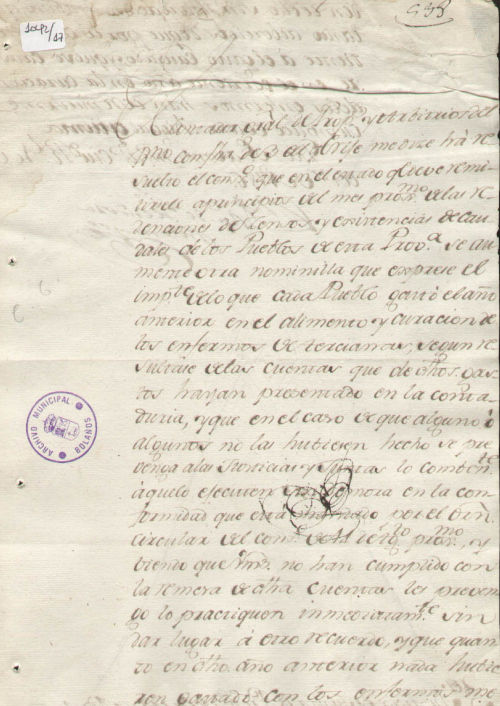 1042/
17
988
Contaur. gral. de Prop.s y Arbitrios del
Rno con fha. de 3 del me dice há re
suelto el cons.o que en el estado q.e devo remi
tirle à principios del mes prox.mo de las re
denciones de Censos y existencias de cau
dales de los Pueblos de esta Prov.a se au
mente otra nominilla que exprese el
imp.te de lo que cada Pueblo gastó el año
anterior en el alimento y curacion de
los enfermos de tercianas, segun re
sultare de las cuentas que de dhos. gas
tos hayan presentado en la conta
duria, y que en el caso de que alguno ò
algunos no las hubiesen hecho se pre
venga a las Justicias y Juntas lo combente
àquelo ejecuten sin demora en la con
formidad que está mandado por el
circular del cons.o de dho prox.mo, y
biendo que Vms. no han cumplido con
la remesa de dha cuentas les preven
go lo practiquen inmediatam.te sin
dar lugar à otro recuerdo, y que quan
to en dho. año anterior nada hubie
ren gastado con los enfermos me
ARCHIVO MUNICIPAL
BOLAÑOS